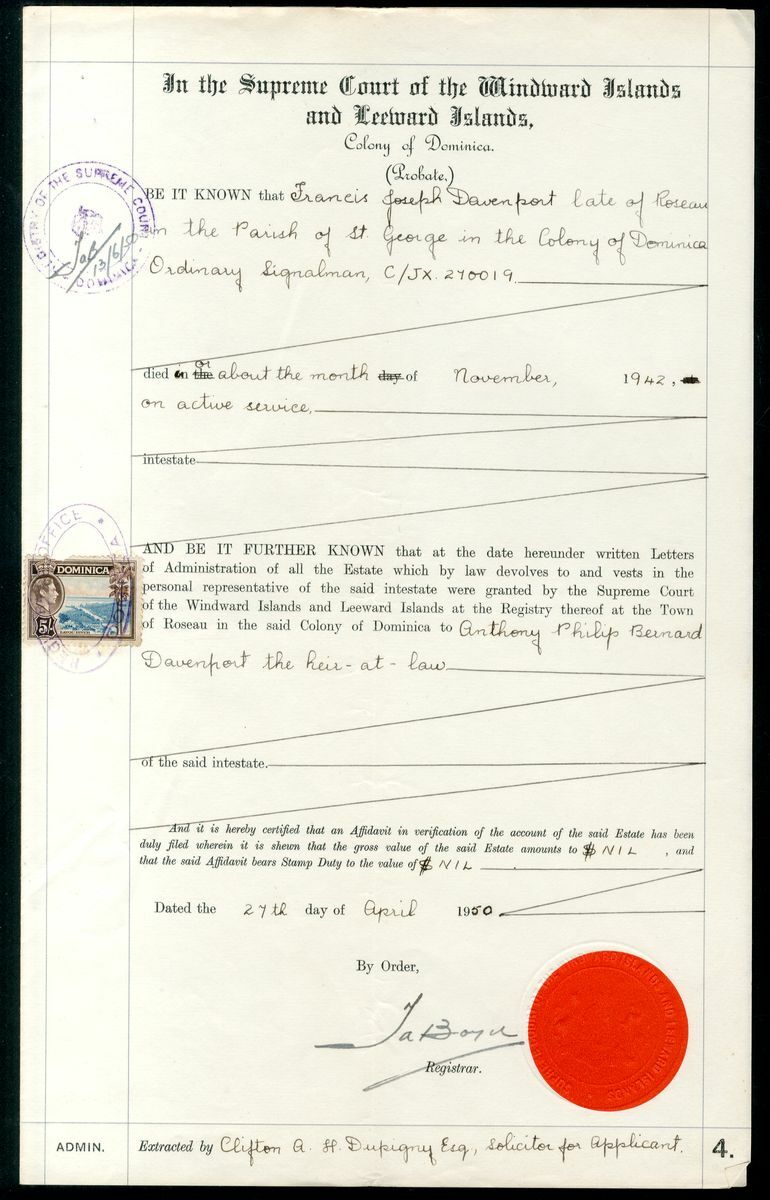 In the Supreme Court of the Windward Islands
and Leeward Islands,
Colony of Dominica.
(Probate.)
REGISTRY OF THE SUPREME COURT
DOMINICA
JaB
13/6/50
BE IT KNOWN that Francis Joseph Davenport late of Roseau
in the Parish of St George in the Colony of Dominica
Ordinary Signalman, C/JX.270019.
died in or the about the month day of November, 1942, at
on active service.
intestate
OFFICE
DOMINICA
5/-
AND BE IT FURTHER KNOWN that at the date hereunder written Letters
of Administration of all the Estate which by law devolves to and vests in the
personal representative of the said intestate were granted by the Supreme Court
of the Windward Islands and Leeward Islands at the Registry thereof at the Town
of Roseau in the said Colony of Dominica to Anthony Philip Bernard
Davenport the heir-at-law
of the said intestate.
And it is hereby certified that an Affidavit in verification of the account of the said Estate has been
duly filed wherein it is shewn that the gross value of the said Estate amounts to $ NIL , and
that the said Affidavit bears Stamp Duty to the value of $ NIL
Dated the 27th day of April 1950
By Order,
JaBoyd
Registrar.
ADMIN.
Extracted by Clifton A. H. Dupigny Esq, Solicitor for Applicant.
4.